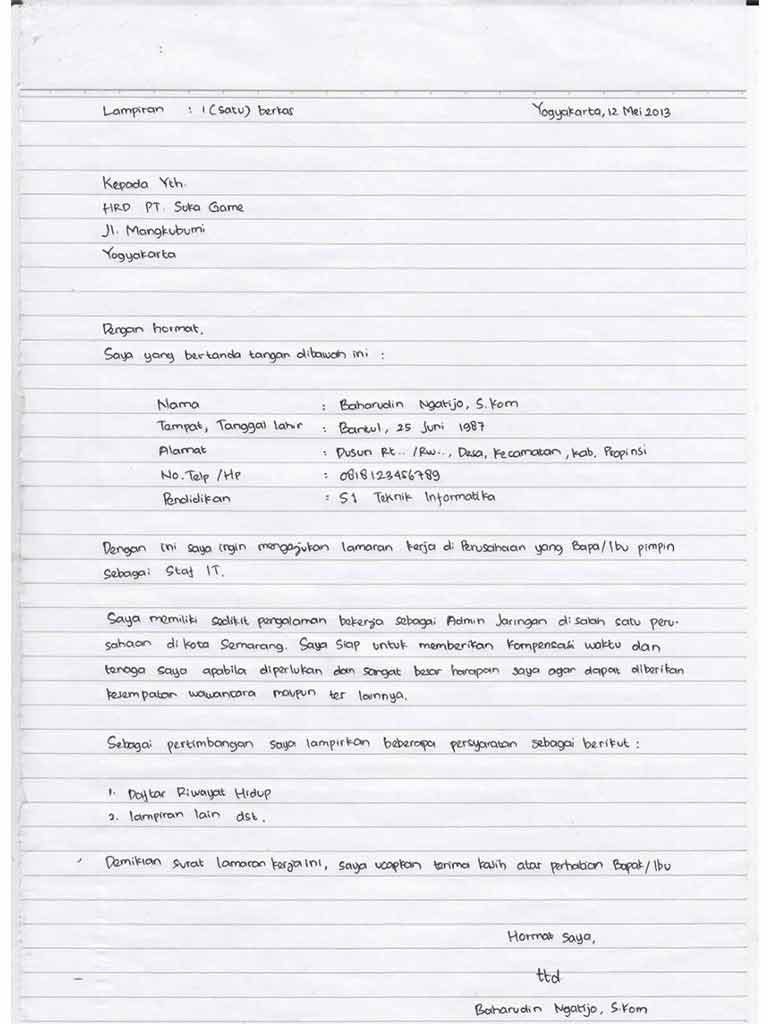 Lampiran : 1 (satu) berkas Yogyakarta, 12 Mei 2013
Kepada Yth.
HRD PT. Suka Game
Jl. Mangkubumi
Yogyakarta
Dengan hormat,
Saya yang bertanda tangan dibawah ini :
Nama : Baharudin Ngatijo, S.Kom
Tempat, Tanggal lahir : Bantul, 25 Juni 1987
Alamat : Dusun Rt.. /Rw.., Desa, Kecamatan, Kab. Propinsi
No. Telp /Hp : 0818123456789
Pendidikan : S1 Teknik Informatika
Dengan ini saya ingin mengajukan lamaran kerja di Perusahaan yang Bapa/Ibu pimpin
sebagai Staf IT.
Saya memiliki sedikit pengalaman bekerja sebagai Admin Jaringan di salah satu peru-
sahaan di kota Semarang. Saya siap untuk memberikan kompensasi waktu dan
tenaga saya apabila diperlukan dan sangat besar harapan saya agar dapat diberikan
kesempatan wawancara maupun tes lainnya.
Sebagai pertimbangan saya lampirkan beberapa persyaratan sebagai berikut :
1. Daftar Riwayat Hidup
2. lampiran lain dst.
Demikian surat lamaran kerja ini, saya ucapkan terima kasih atas perhatian Bapak/Ibu
Hormat saya,
ttd
Baharudin Ngatijo, S.Kom